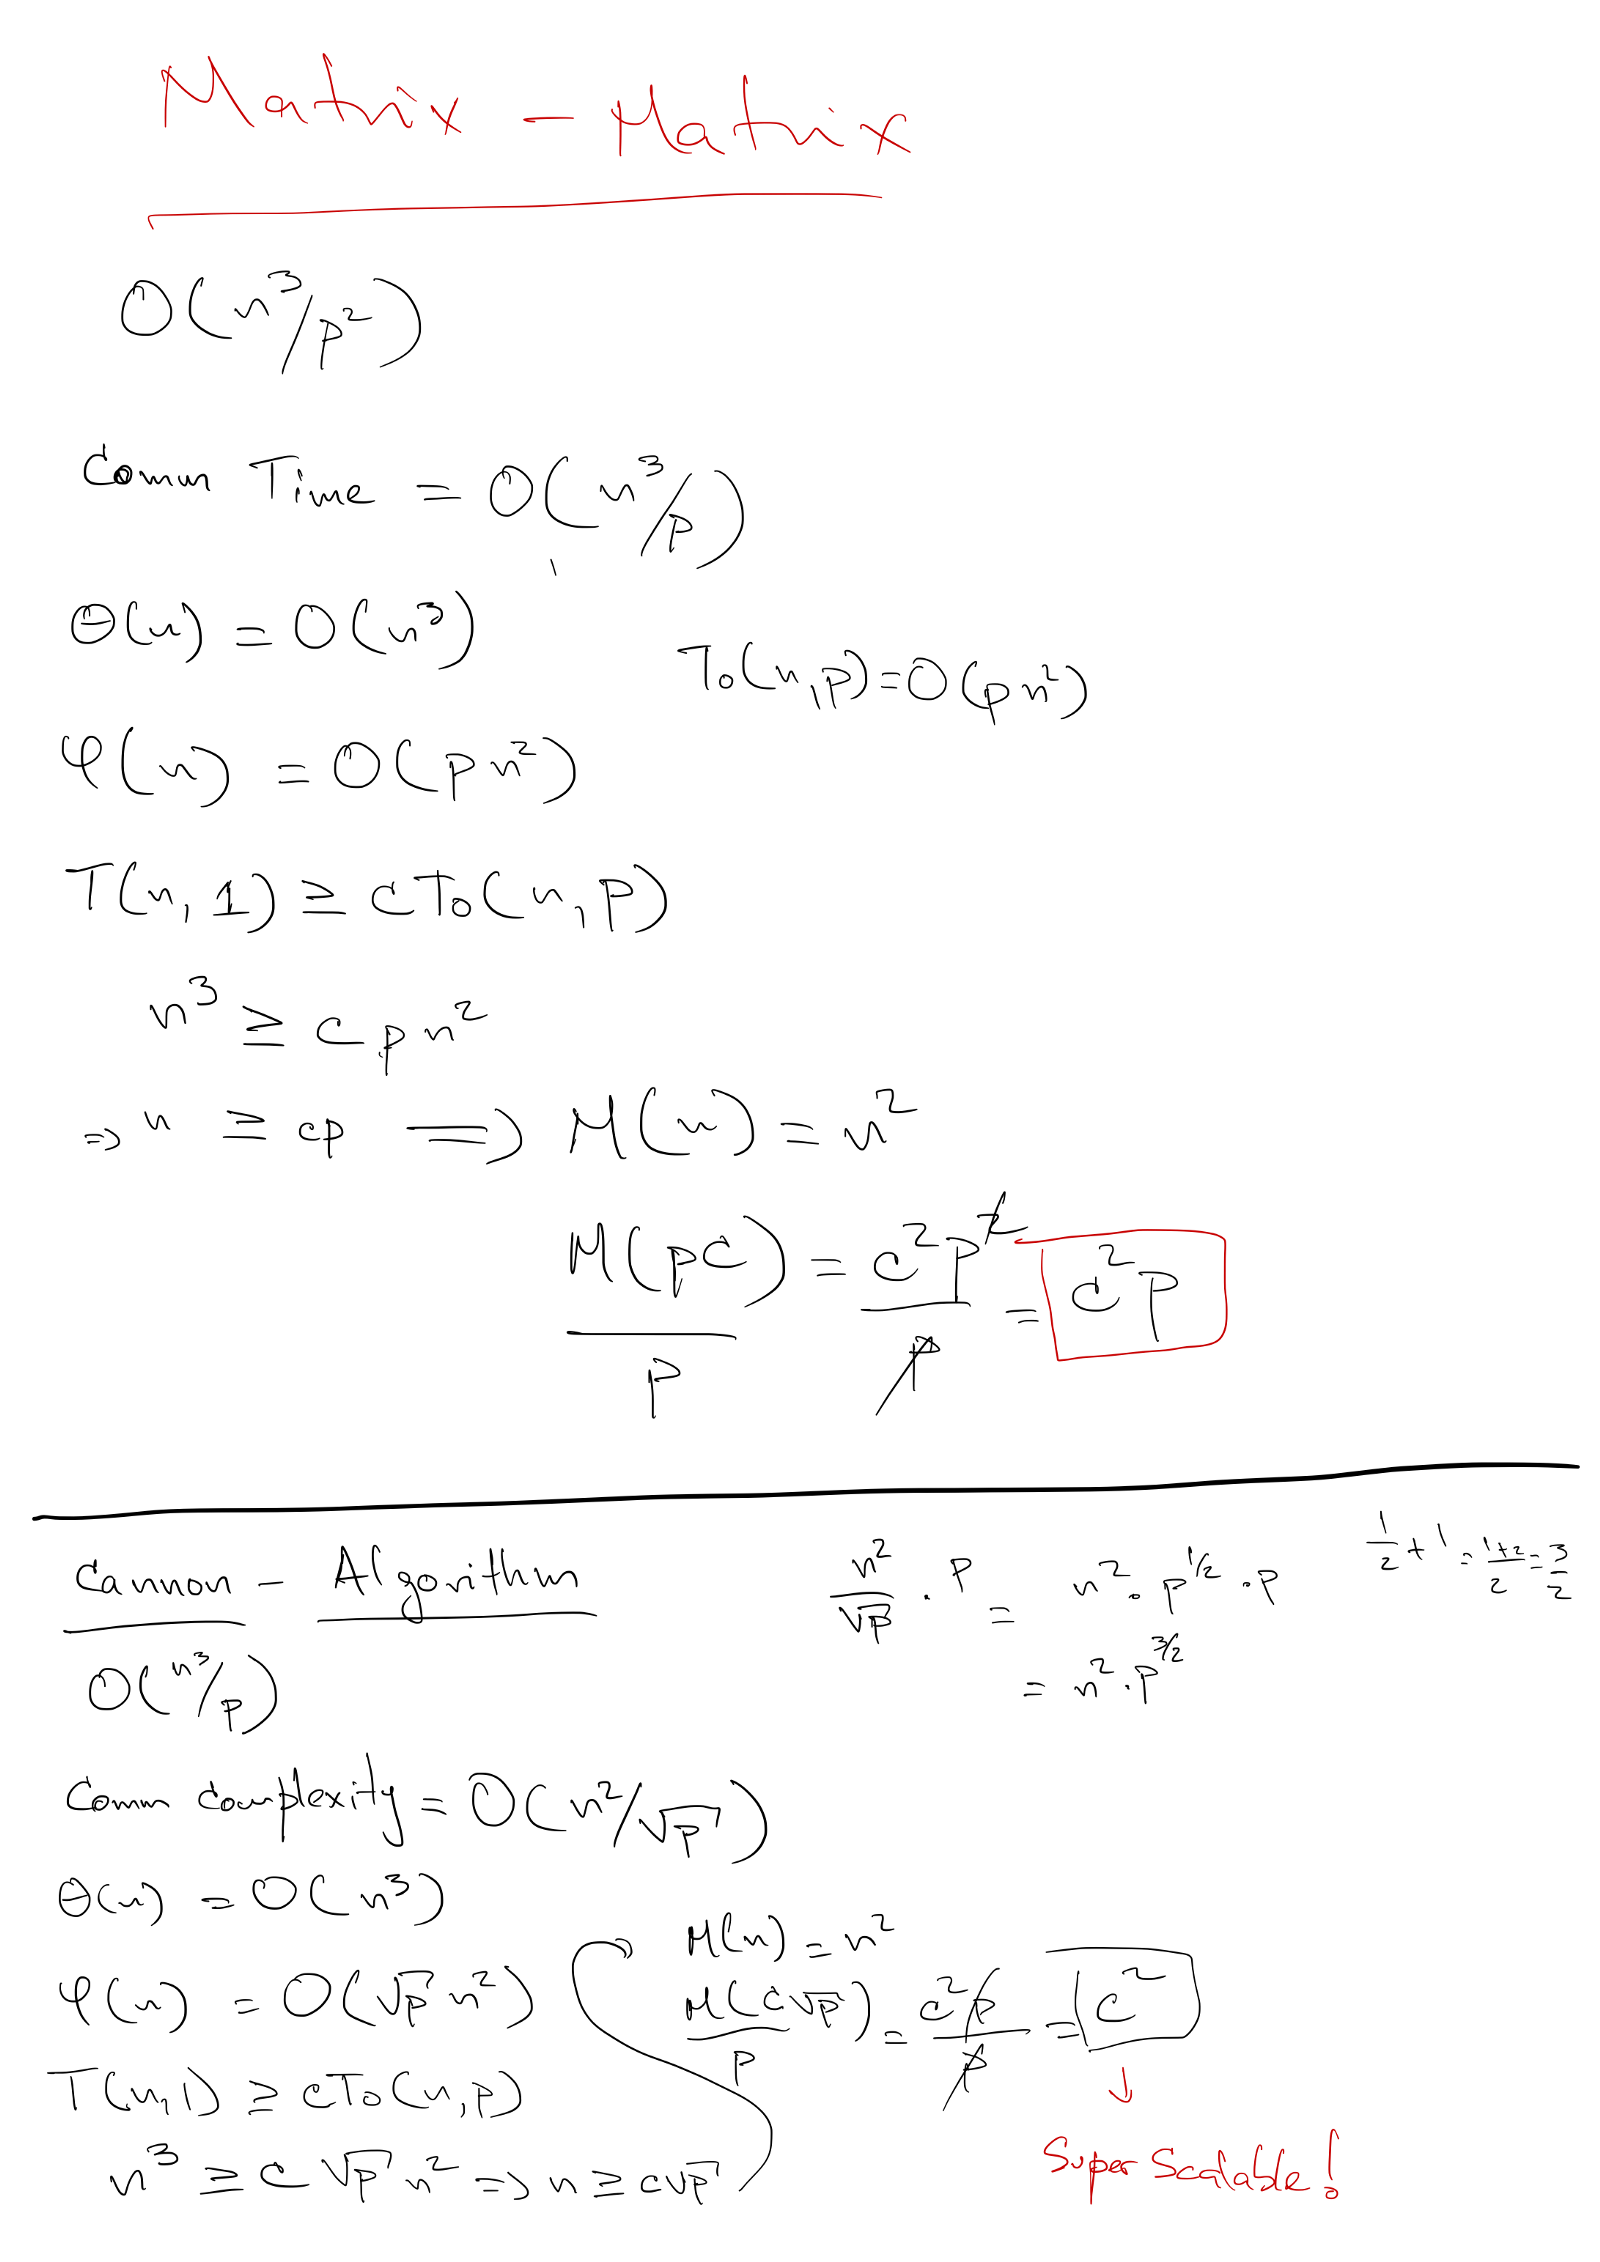 Matrix - Matrix
O(n³/p²)
Comm Time = O(n³/p)
Θ(n) = O(n³)
To(n,p)=O(pn²)
φ(n) = O(pn²)
T(n,1) ≥ cTo(n,p)
n³ ≥ cpn²
⇒ n ≥ cp ⟹ M(n) = n²
M(pc)/p = c²p²/p = c²p
Cannon - Algorithm
n²/√p · p = n² · p^1/2 · p
1/2 + 1 = 1+2/2 = 3/2
= n² · p^3/2
O(n³/p)
Comm complexity = O(n²/√p)
Θ(n) = O(n³)
φ(n) = O(√p n²)
T(n,1) ≥ cTo(n,p)
n³ ≥ c√p n² ⇒ n ≥ c√p
M(n) = n²
M(c√p)/p = c²p/p = c²
↓
Super Scalable!